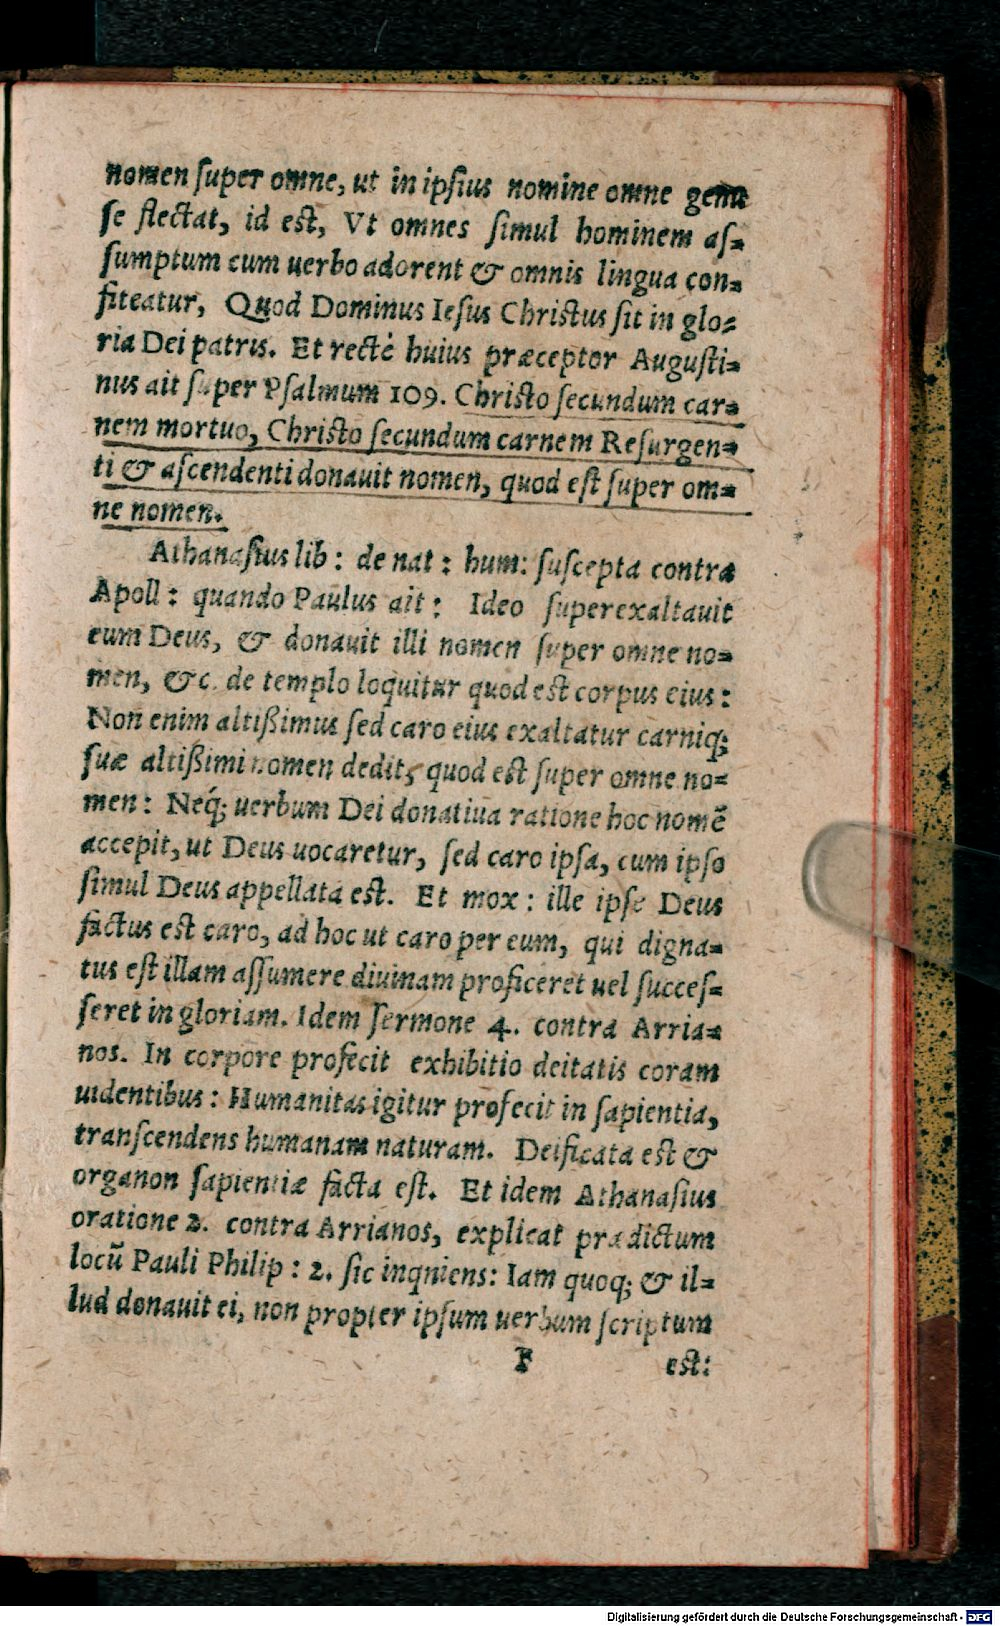 nomen ſuper omne, ut in ipſius nomine omne genu
ſe flectat, id eſt, Vt omnes ſimul hominem aſ⸗
ſumptum cum uerbo adorent & omnis lingua con⸗
fiteatur, Quod Dominus Ieſus Chriſtus ſit in glo⸗
ria Dei patris. Et rectè huius præceptor Auguſti⸗
nus ait ſuper Pſalmum 109. Chriſto ſecundum car⸗
nem mortuo, Chriſto ſecundum carnem Reſurgen⸗
ti & aſcendenti donauit nomen, quod eſt ſuper om⸗
ne nomen.
Athanaſius lib: de nat: hum: ſuſcepta contra
Apoll: quando Paulus ait: Ideo ſuperexaltauit
eum Deus, & donauit illi nomen ſuper omne no⸗
men, &c. de templo loquitur quod eſt corpus eius:
Non enim altißimus ſed caro eius exaltatur carniq;
ſuæ altißimi nomen dedit, quod eſt ſuper omne no⸗
men: Neq́; uerbum Dei donatiua ratione hoc nomẽ
accepit, ut Deus uocaretur, ſed caro ipſa, cum ipſo
ſimul Deus appellata eſt. Et mox: ille ipſe Deus
factus eſt caro, ad hoc ut caro per eum, qui digna⸗
tus eſt illam aſſumere diuinam proficeret uel succeſ⸗
ſeret in gloriam. Idem ſermone 4. contra Arria⸗
nos. In corpore profecit exhibitio deitatis coram
uidentibus: Humanitas igitur profecit in ſapientia,
tranſcendens humanam naturam. Deificata eſt &
organon ſapientiæ facta eſt. Et idem Athanaſius
oratione 2. contra Arrianos, explicat prædictum
locũ Pauli Philip: 2. ſic inqniens: Iam quoq; & il⸗
lud donauit ei, non propter ipſum uerbum ſcriptum
F eſt:
Digitalisierung gefördert durch die Deutsche Forschungsgemeinschaft - DFG